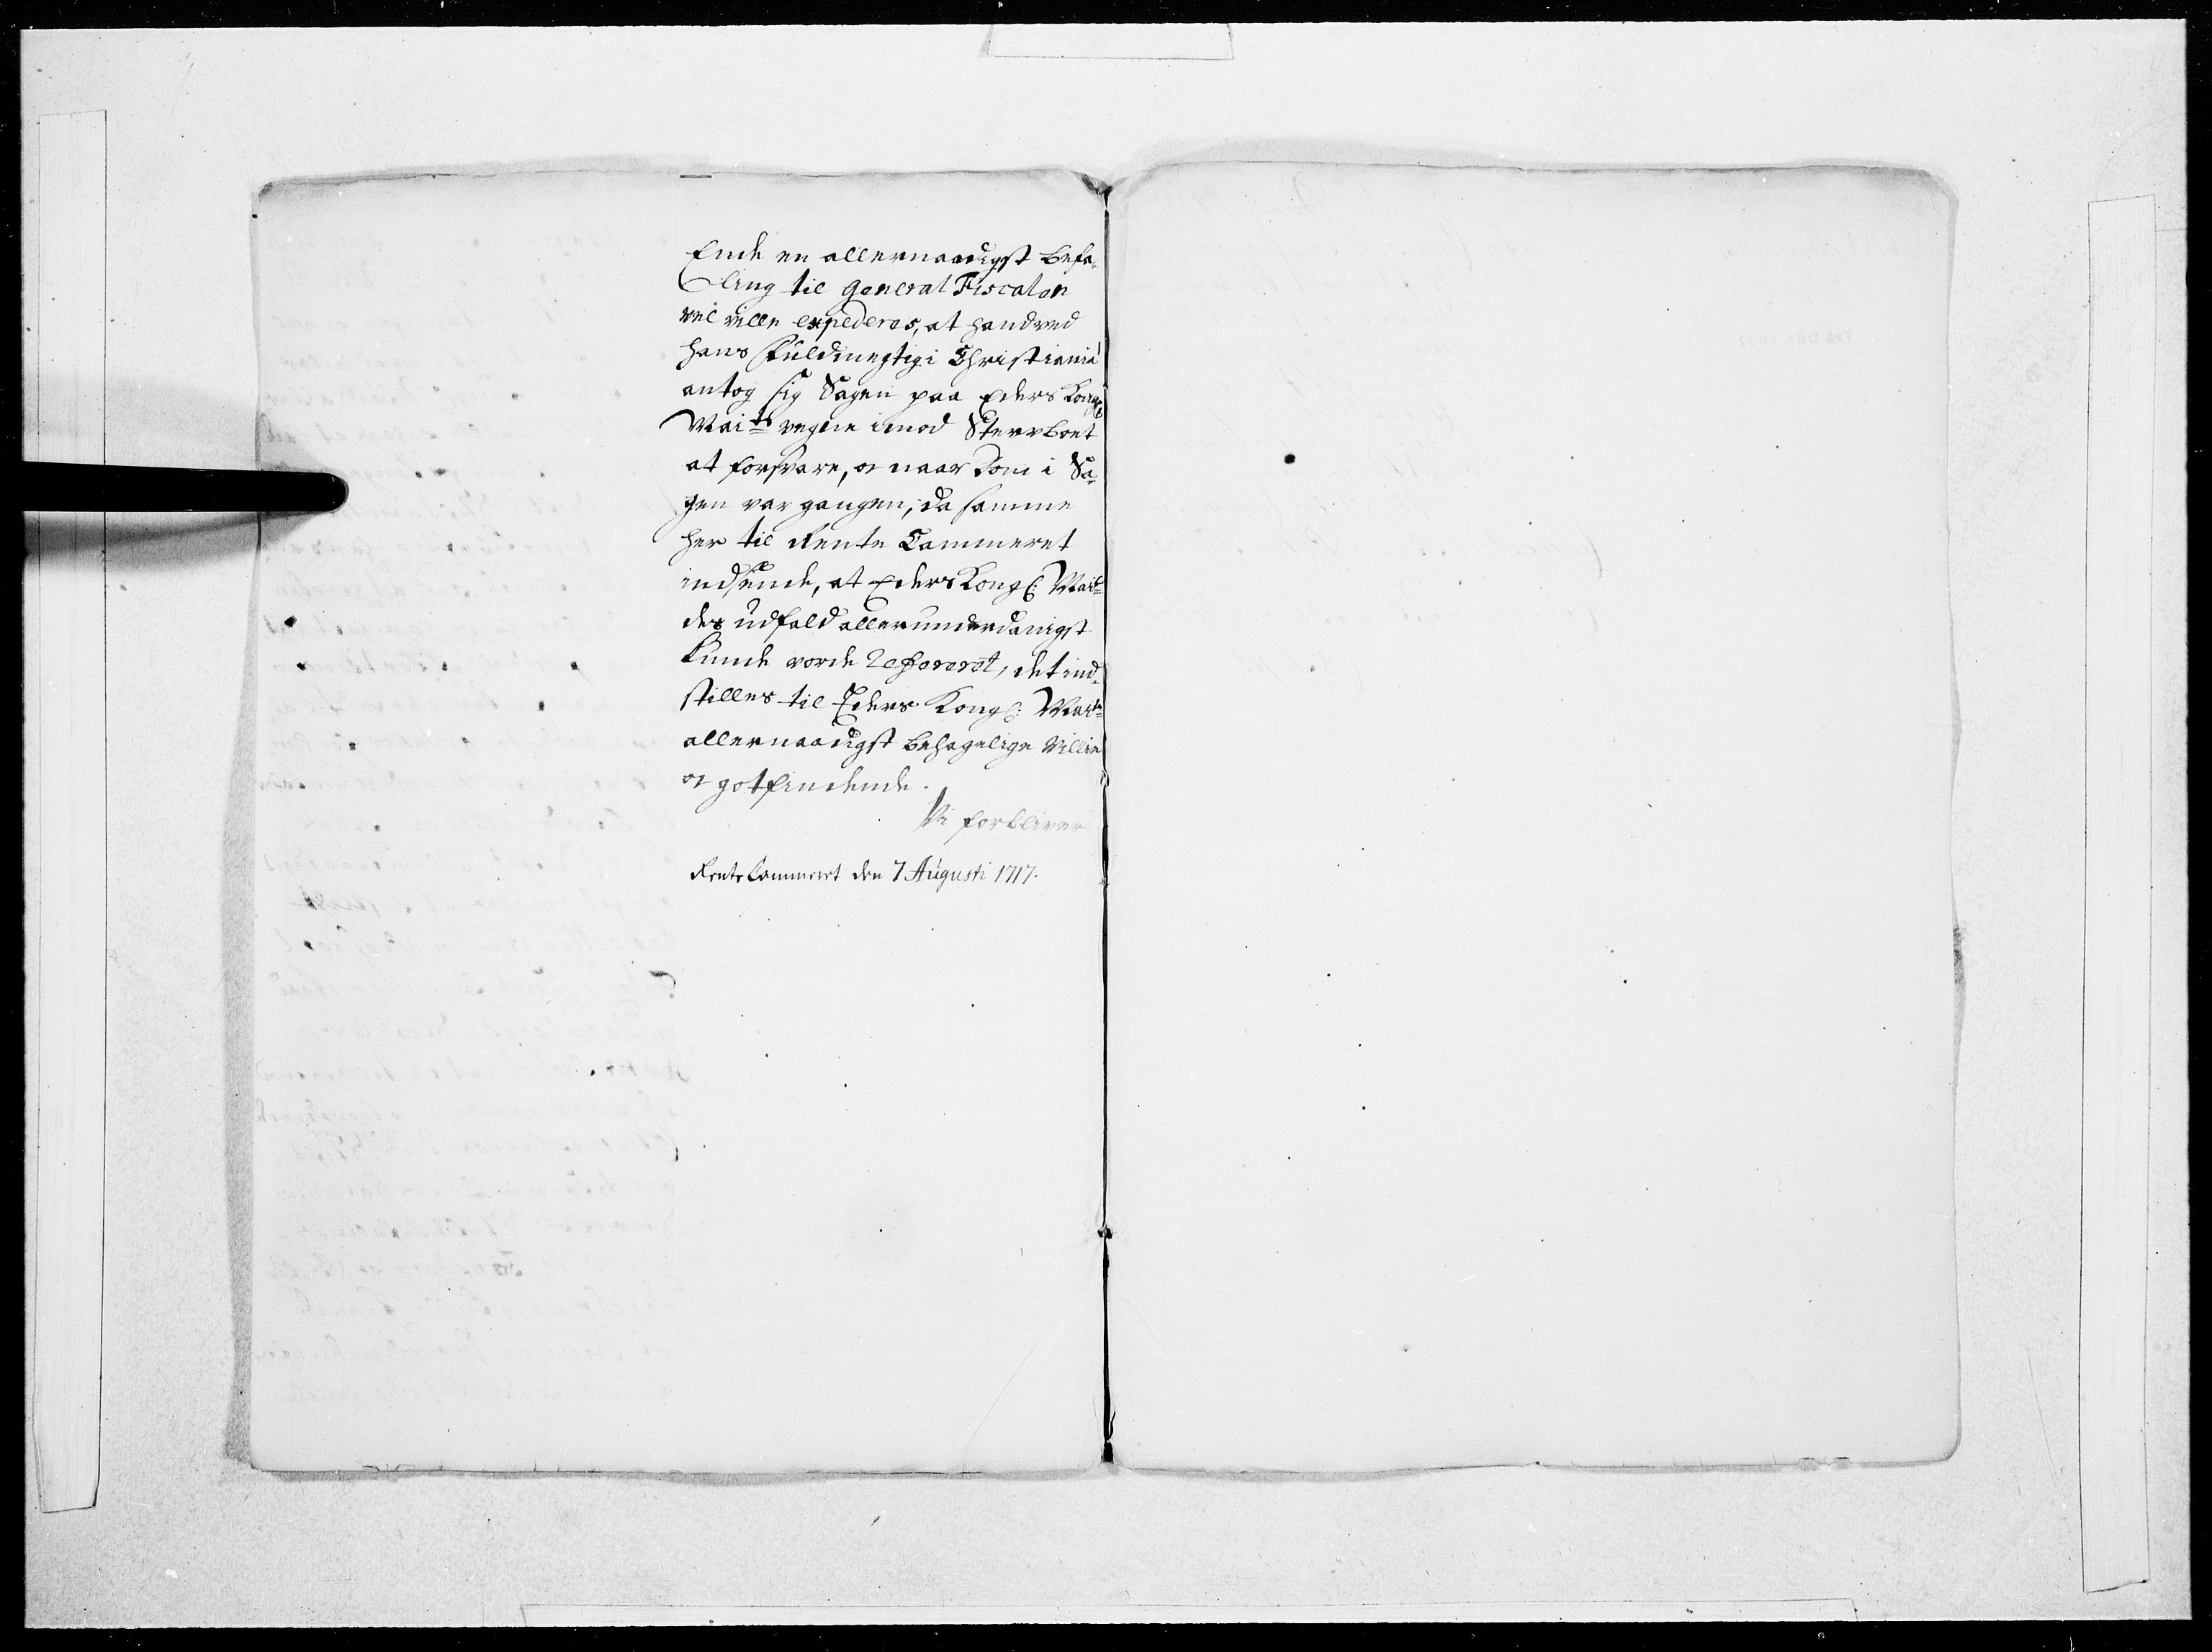 Ende en allernaadigst befa¬
ling til General Fiscalen
vil ville expederes, at hand ved
hans Fuldmegtig i Christiania
antog sig Sagen paa Eders Kongl
Maits vegne imod Sterboet
at forsvare, oc naar Dom i Sa¬
gen var gangen, da samme
her til Rente Cammeret
indsende, at Eders Kongl: Mait
des udfald allerunderdanigst
kunde vorde Refereret, det ind¬
stilles til Eders Kongl: Maits
allernaadigst behagelige Villie
oc gotfindende.
Vi forbliver
Rente Cammeret den 7 Augusti 1717.